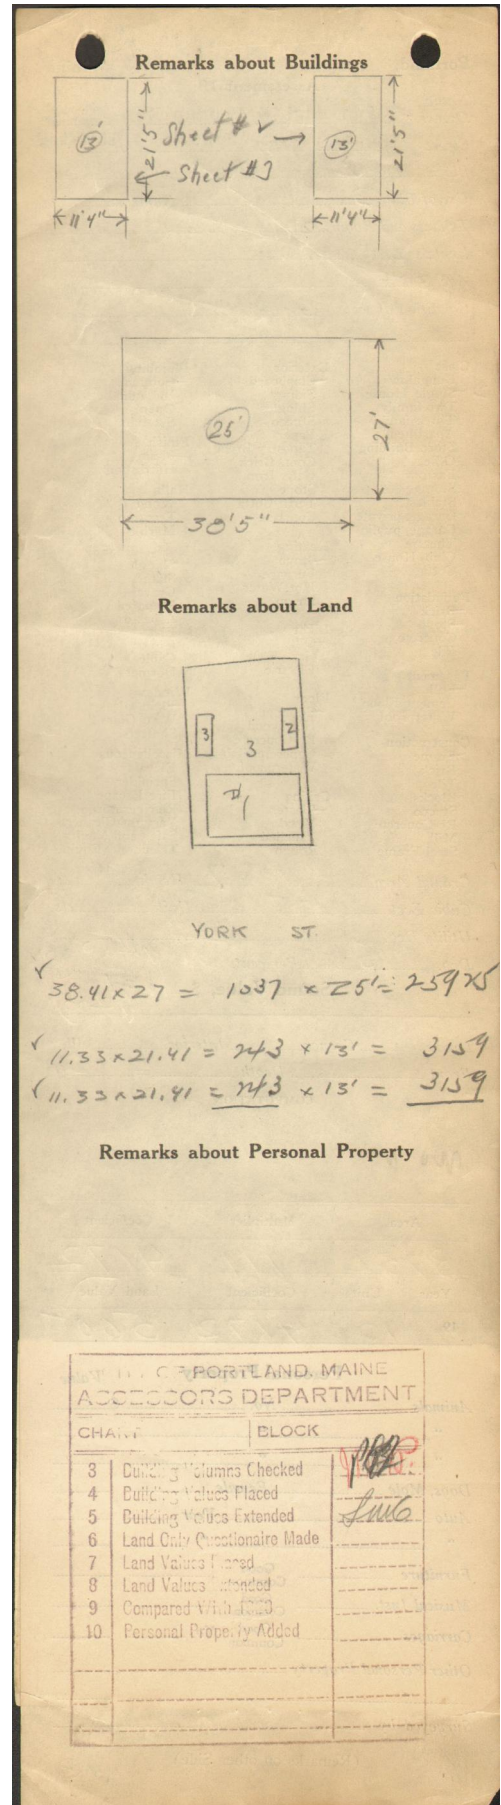 Remarks about Buildings
13'
21'5"
Sheet # 2 →
13'
21'5"
← Sheet #3
11'4"
11'4"
25'
27'
38'5"
Remarks about Land
3
2
3
#1
YORK ST.
✓ 38.41 x 27 = 1037 x 25' = 25925
✓ 11.33 x 21.41 = 243 x 13' = 3159
✓ 11.33 x 21.41 = 243 x 13' = 3159
Remarks about Personal Property
OF PORTLAND, MAINE
ASSESSORS DEPARTMENT
CHART BLOCK
3 Building Volumns Checked
4 Building Values Placed
5 Building Values Extended
6 Land Only Questionaire Made
7 Land Values Placed
8 Land Values Extended
9 Compared With
10 Personal Property Added